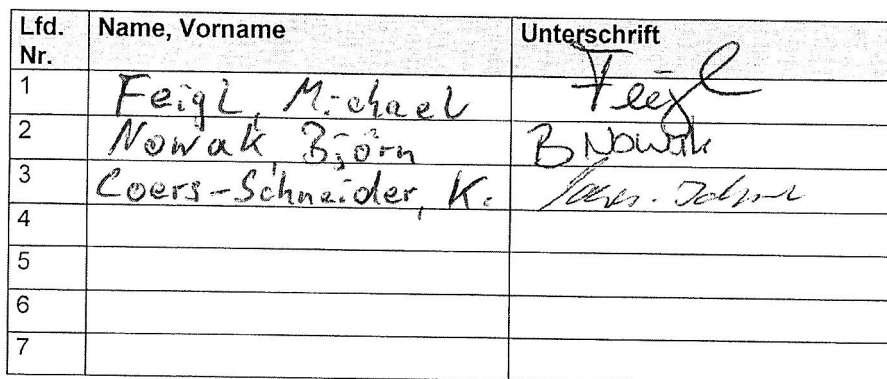 Lfd. Nr. Name, Vorname Unterschrift
1 Feigl, Michael Feigl
2 Nowak, Björn B Nowak
3 Coers-Schneider, K.
4
5
6
7